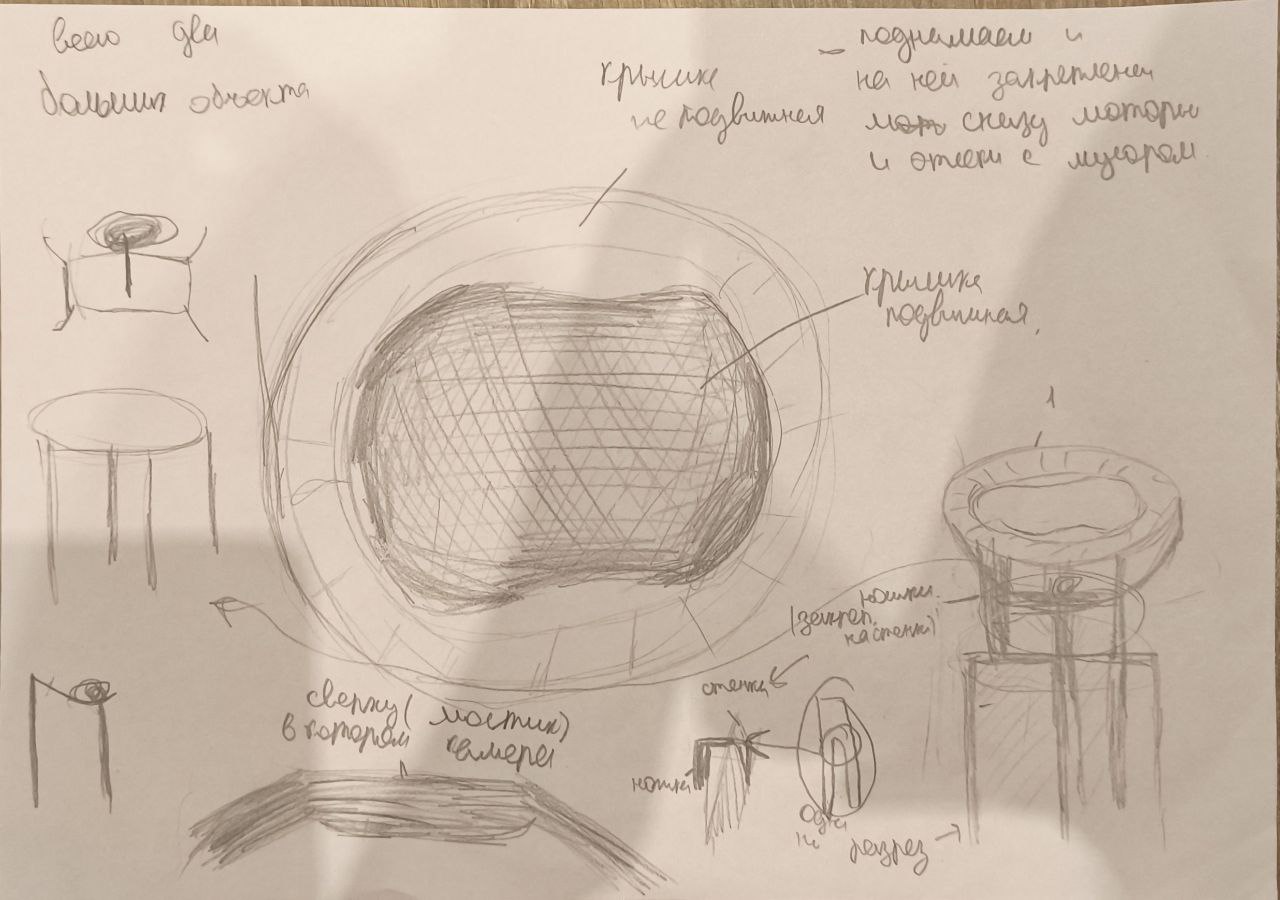 всего два
больших объекта
крышка
не подвижная
– поднимаем и
на ней закреплены
снизу моторы
и отсеки с мусором.
крышка
подвижная.
1
ножки.
(закреп.
на стенки)
стенка
ножка
сверху (мостик)
в котором камера
разрез